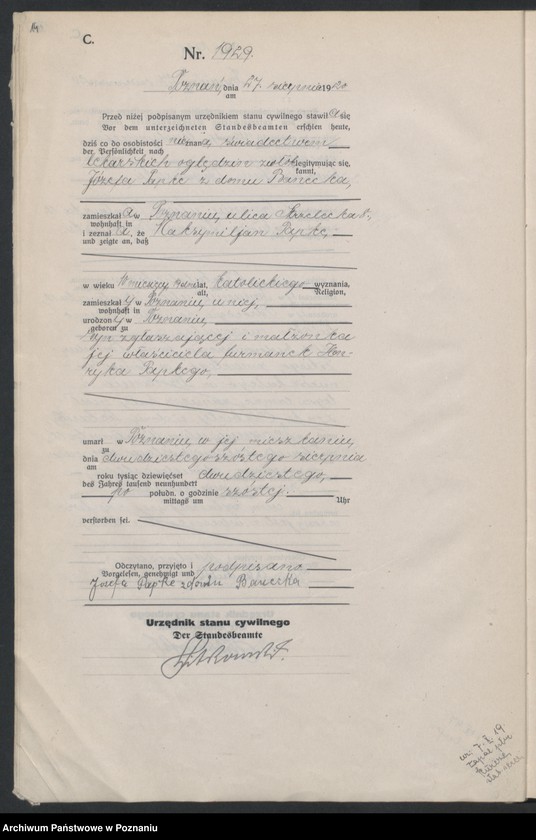 C.
Nr. 1929.
Poznań, dnia 27 sierpnia 1920
am
Przed niżej podpisanym urzędnikiem stanu cywilnego stawił a się
Vor dem unterzeichneten Standesbeamten erschien heute,
dziś co do osobistości nieznana, świadectwem
der Persönlichkeit nach
lekarskich oględzin zwłok legitymując się,
kannt,
Józefa Papke z domu
zamieszkał a w Poznaniu, ulica
wohnhaft in
i zeznał a, że Maksymiljan Papke,
und zeigte an, daß
w wieku lat, katolickiego wyznania,
alt, Religion,
zamieszkał y w Poznaniu u niej,
wohnhaft in
urodzon y w Poznaniu,
geboren zu
syn zgłaszającej i małżonka
jej właściciela furmanek Hen-
ryka Papkego,
umarł w Poznaniu, w jej mieszkaniu,
zu
dnia dwudziestegoszóstego sierpnia
am
roku tysiąc dziewięćset dwudziestego,
des Jahres tausend neunhundert
po połudn. o godzinie szóstej.
mittags um Uhr
verstorben sei.
Odczytano, przyjęto i podpisano
Vorgelesen, genehmigt und
Józefa Papke z domu
Urzędnik stanu cywilnego
Der Standesbeamte
Archiwum Państwowe w Poznaniu